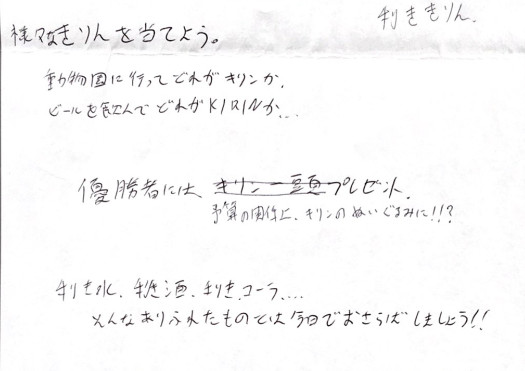 利ききりん.
様々なきりんを当てよう。
動物園に行ってどれがキリンか.
ビールを飲んでどれがKIRINか...
優勝者には キリン一頭プレゼント.
予算の関係上、キリンのぬいぐるみに!!?
利き水、利き酒、利きコーラ、...
そんなありふれたものとは今日でおさらばしましょう!!